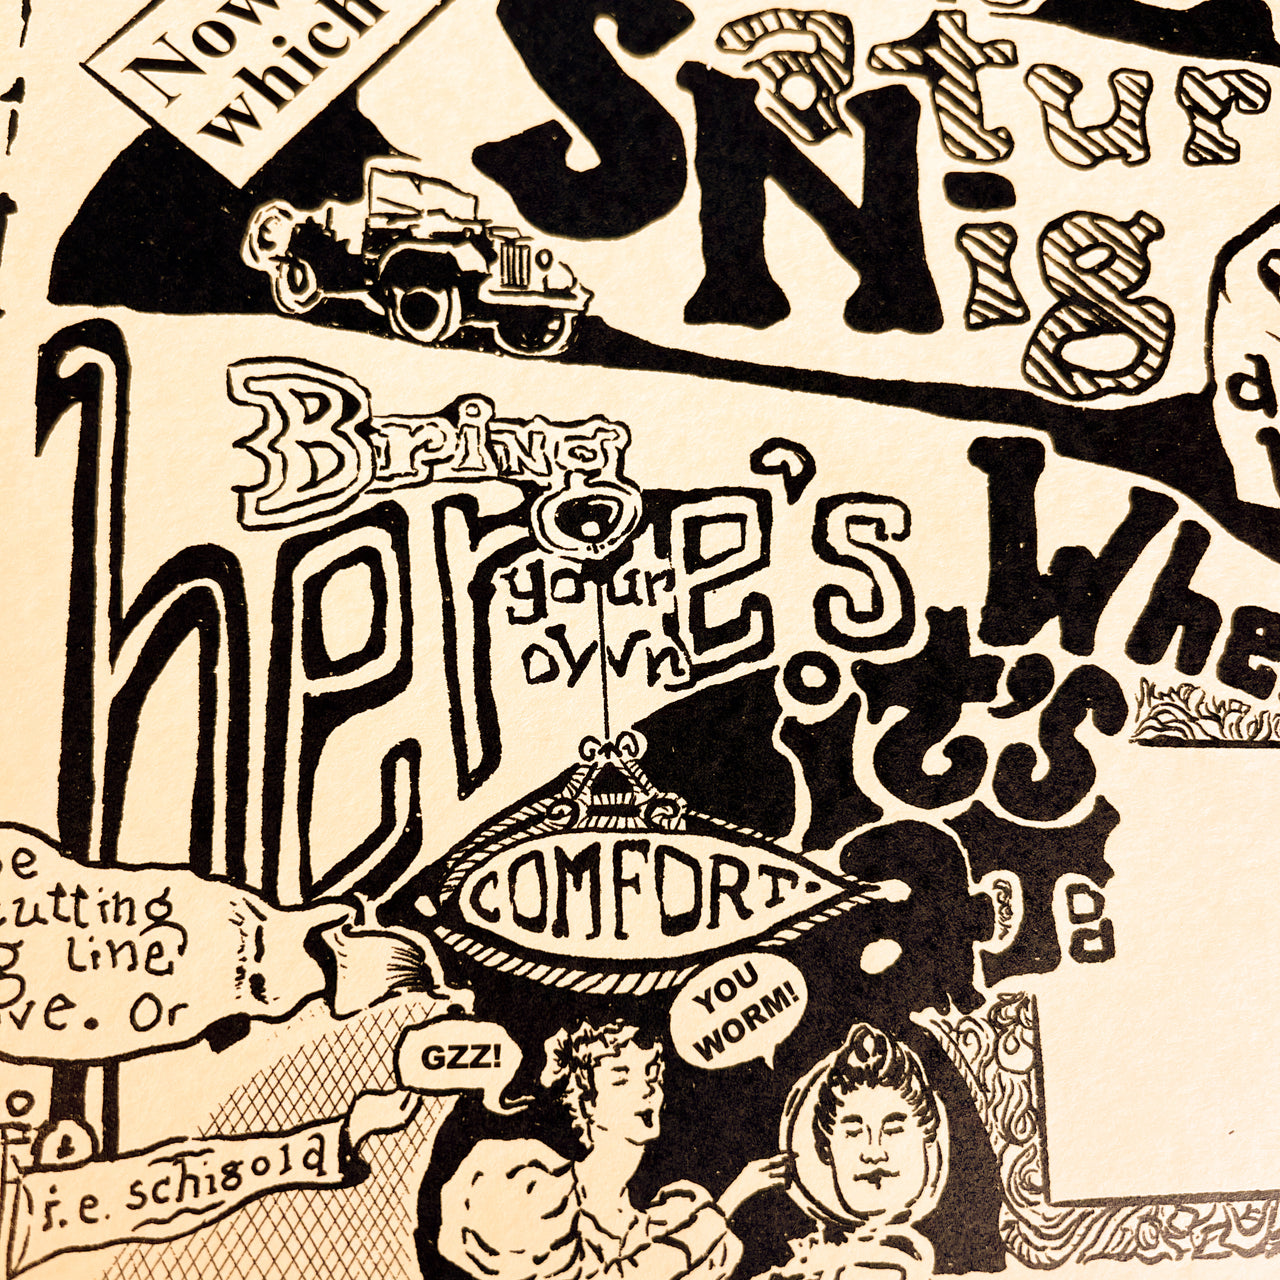 Now
which
Satur
Nig
Bring
here's
your
own
Whe
it's
at
COMFORT
utting
line
ve. Or
YOU
WORM!
GZZ!
j.e. schigold